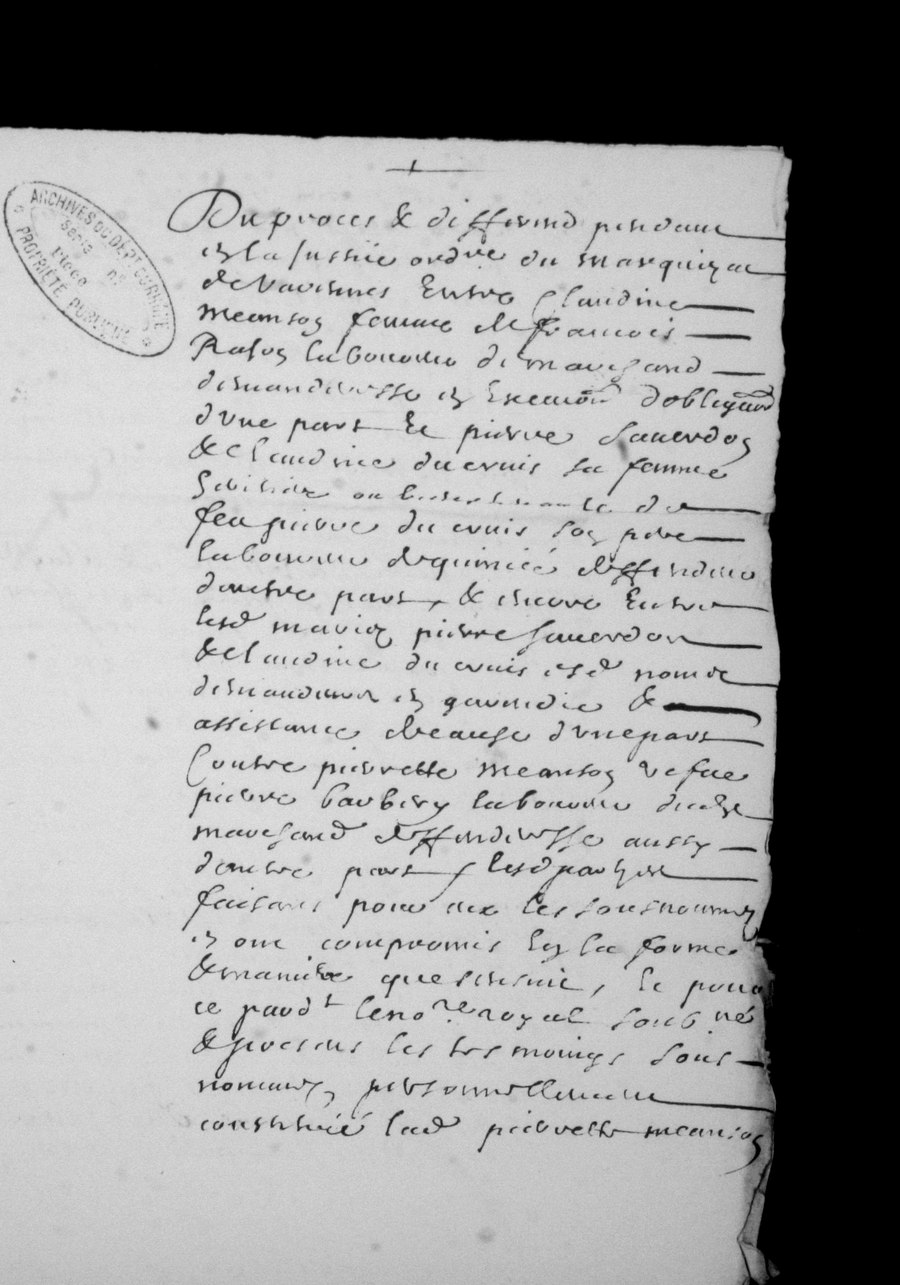 ARCHIVES DU DEPT DU RHONE
Serie n°
Liasse
PROPRIÉTÉ PUBLIQUE
Du proces & differend pendant
en la Justice ordre du marquizat
de Varennes Entre Claudine
meanson femme de francois
laboureur de marchand
demanderesse en Execution d'obligaon
d'une part Et pierre Sauerdon
& Claudine du cruis sa femme
de
feu pierre du cruis son pere
laboureur deffendeur
dautre part, & encore Entre
lesd mariez pierre Sauerdon
& Claudine du cruis esd noms
demandeurs en garendie &
assistance de cause d'une part
Contre pierrette meanson vefue
pierre barbery laboureur dudt
marchand deffenderesse aussy
dautre part, lesd parties
faisant pour eux les sousnommez
en ont compromis En la forme
& maniere que sensuit, Et pour
ce pardt le nore royal soubné
& presens les tesmoings sous
nommez, personnellement
constitué lad pierrette meanson